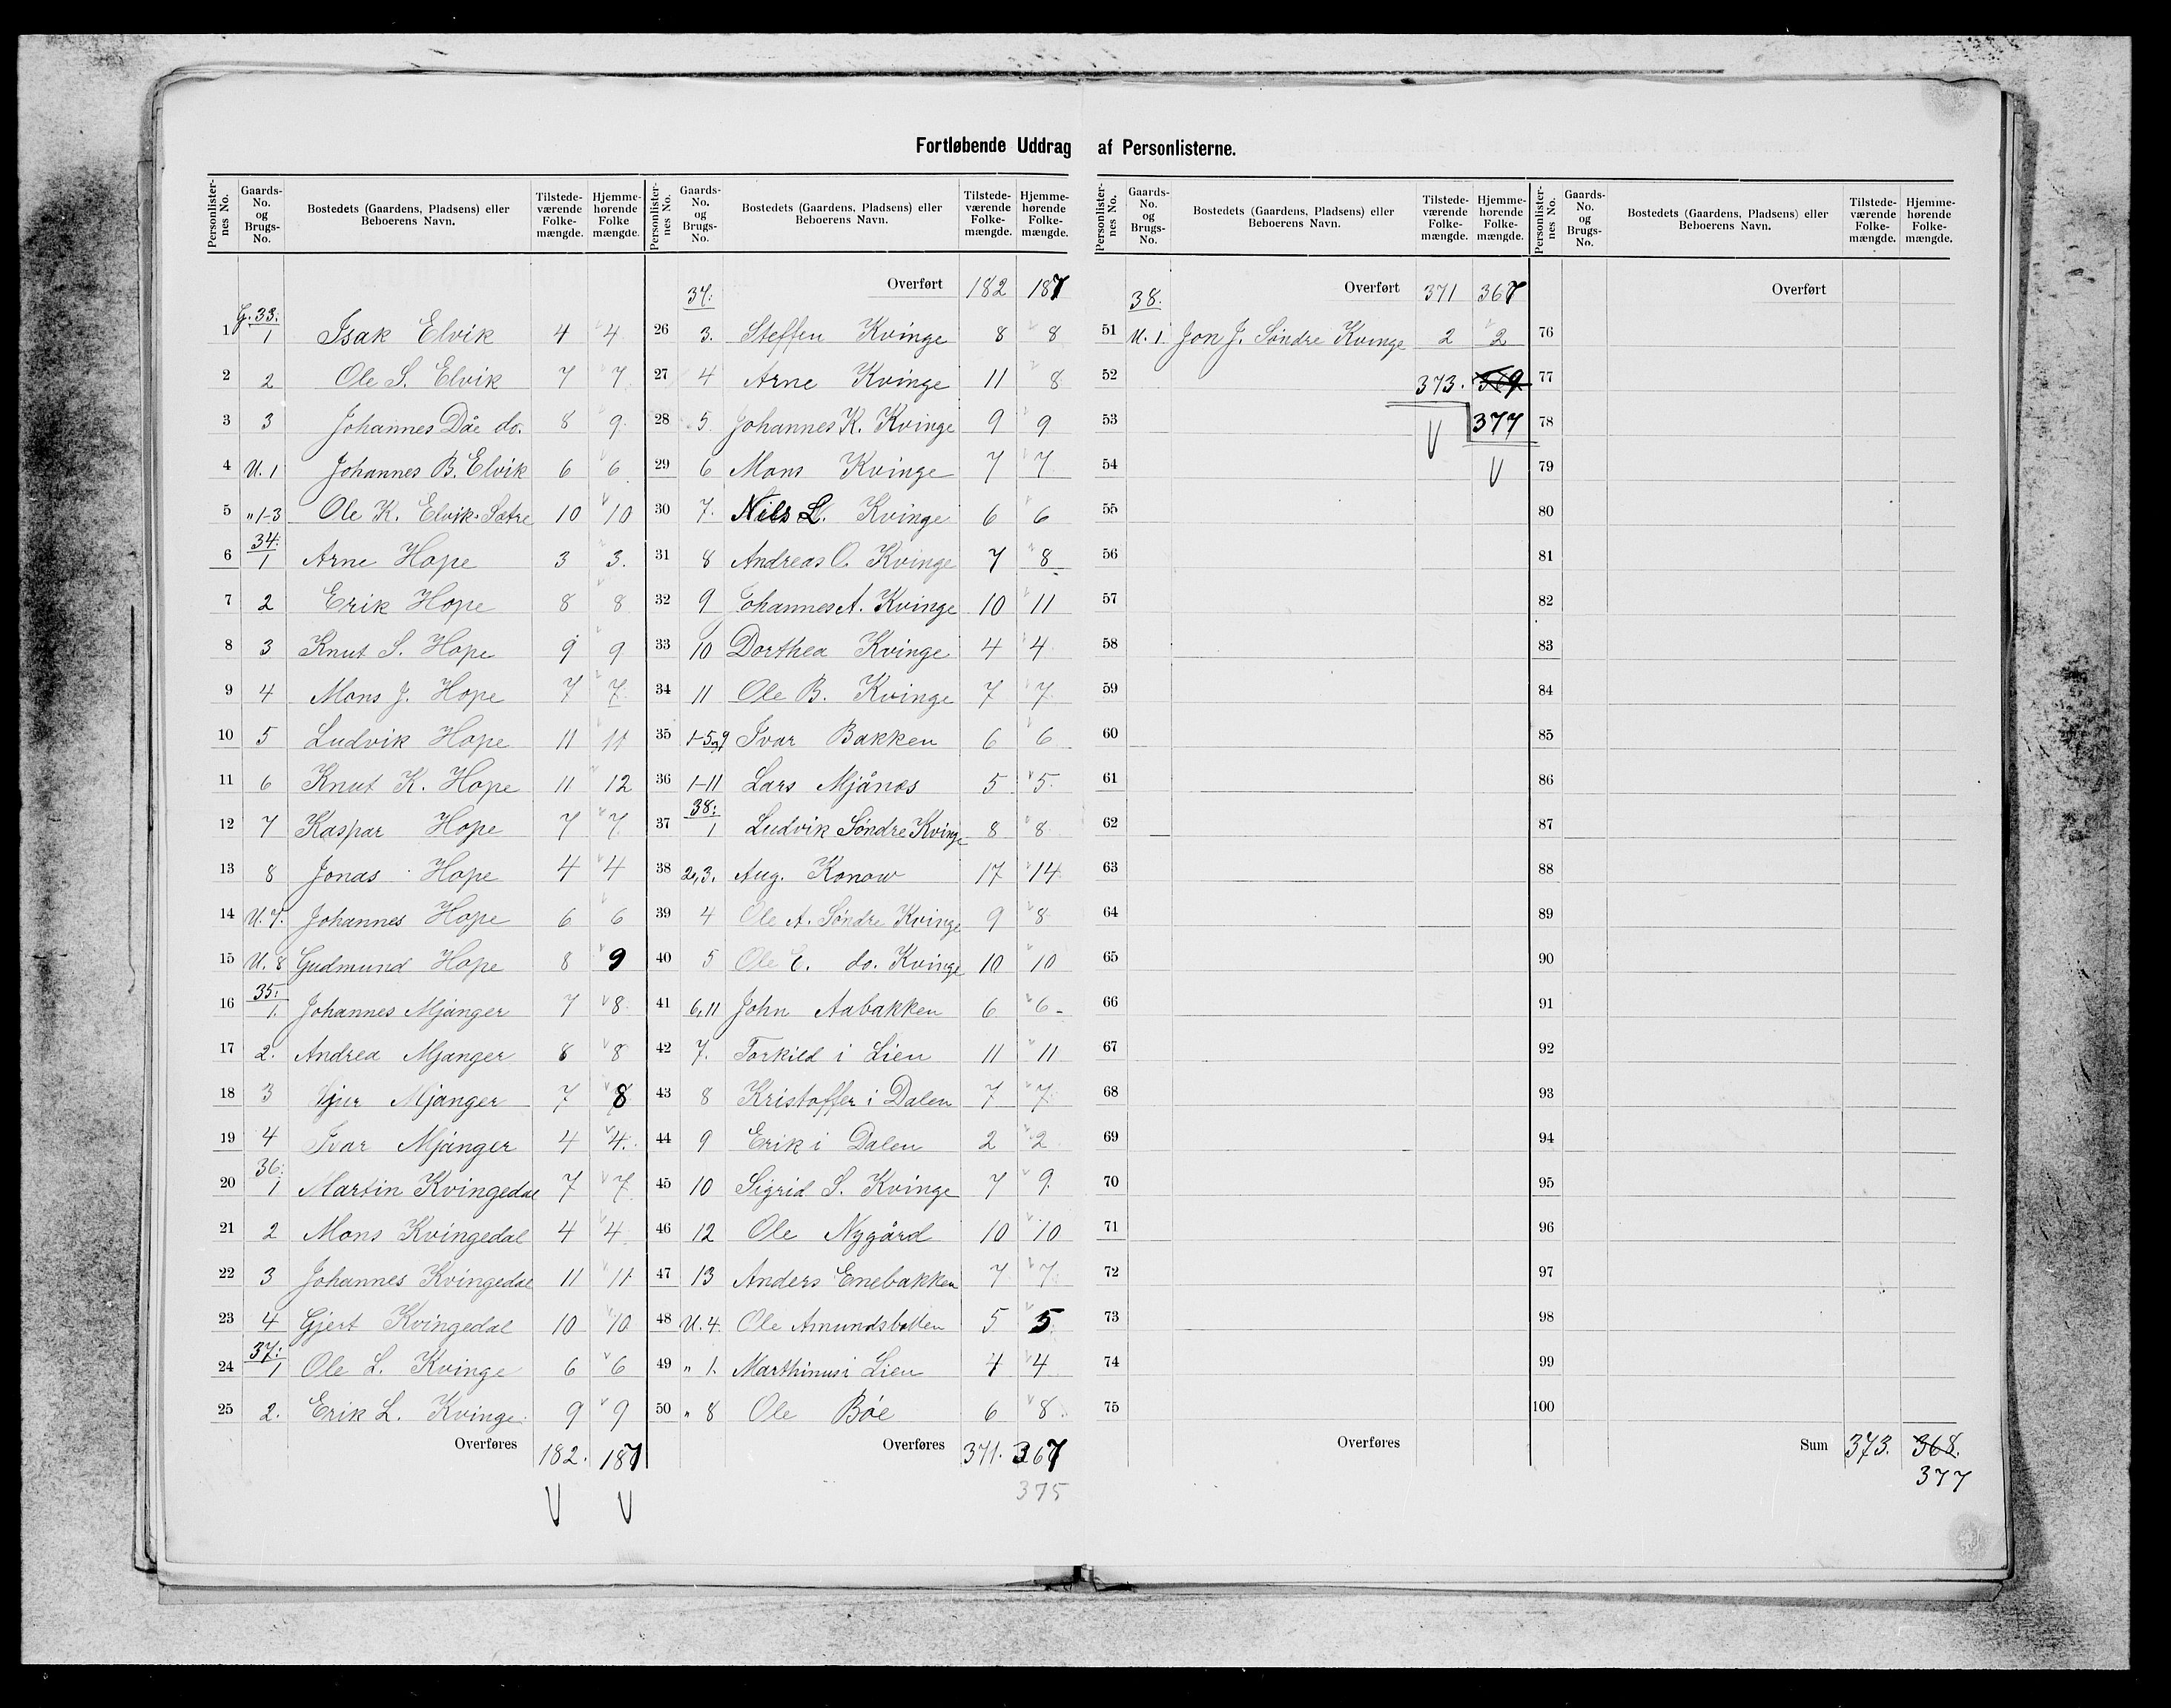 Fortløbende Uddrag af Personlisterne.
Personlister-nes No. Gaards-No. og Brugs-No. Bostedets (Gaardens, Pladsens) eller Beboerens Navn. Tilstede-værende Folke-mængde. Hjemme-hørende Folke mængde.
G. 33:
1 1 Isak Elvik 4 4
2 2 Ole S. Elvik 7 7
3 3 Johannes Dåe do. 8 9
4 U. 1 Johannes B. Elvik 6 6
5 " 1-3 Ole K. Elvik-Sætre 10 10
34:
6 1 Arne Hope 3 3.
7 2 Erik Hope 8 8
8 3 Knut S. Hope 9 9
9 4 Mons J. Hope 7 7
10 5 Ludvik Hope 11 11
11 6 Knut K. Hope 11 12
12 7 Kaspar Hope 7 7
13 8 Jonas Hope 4 4
14 U. 7. Johannes Hope 6 6
15 U. 8 Gudmund Hope 8 9
35:
16 1. Johannes Mjanger 7 8
17 2. Andrea Mjanger 8 8
18 3 Mjanger 7 8
19 4 Ivar Mjanger 4 4.
36:
20 1 Martin Kvingedal 7 7
21 2 Mons Kvingedal 4 4
22 3 Johannes Kvingedal 11 11
23 4 Gjert Kvingedal 10 10
37:
24 1 Ole L. Kvinge 6 6
25 2. Erik L. Kvinge 9 9
Overføres 182. 187
Personlister-nes No. Gaards-No. og Brugs-No. Bostedets (Gaardens, Pladsens) eller Beboerens Navn. Tilstede-værende Folke-mængde. Hjemme-hørende Folke-mængde.
37: Overført 182 187
26 3. Steffen Kvinge 8 8
27 4 Arne Kvinge 11 8
28 5 Johannes K. Kvinge 9 9
29 6 Mons Kvinge 7 7
30 7. Nils L. Kvinge 6 6
31 8 Andreas O. Kvinge 7 8
32 9 Johannes A. Kvinge 10 11
33 10 Dorthea Kvinge 4 4
34 11 Ole B. Kvinge 7 7
35 1-5 og 9 Ivar Bakken 6 6
36 1-11 Lars Mjånes 5 5
38:
37 1 Ludvik Søndre Kvinge 8 8
38 2,3. Aug. Konow 17 14
39 4 Ole A. Søndre Kvinge 9 8
40 5 Ole E. do. Kvinge 10 10
41 6,11 John Aabakken 6 6
42 7. Torkild i Lien 11 11
43 8 Kristoffer i Dalen 7 7
44 9 Erik i Dalen 2 2
45 10 Sigrid S. Kvinge 7 9
46 12 Ole Nygård 10 10
47 13 Anders Enebakken 7 7
48 U. 4. Ole Amundsbotten 5 5
49 " 1. Marthinus i Lien 4 4
50 " 8 Ole Bøe 6 8
Overføres 371. 367
375
Personlister-nes No. Gaards-No. og Brugs-No. Bostedets (Gaardens, Pladsens) eller Beboerens Navn. Tilstede-værende Folke-mængde. Hjemme-hørende Folke-mængde.
38. Overført 371 367
51 U. 1 Jon J. Søndre Kvinge 2 2
52 373. 369
53 377
54
55
56
57
58
59
60
61
62
63
64
65
66
67
68
69
70
71
72
73
74
75
Overføres
Personlister-nes No. Gaards-No. og Brugs-No. Bostedets (Gaardens, Pladsens) eller Beboerens Navn. Tilstede-værende Folke-mængde. Hjemme-hørende Folke-mængde.
Overført
76
77
78
79
80
81
82
83
84
85
86
87
88
89
90
91
92
93
94
95
96
97
98
99
100
Sum 373. 368.
377